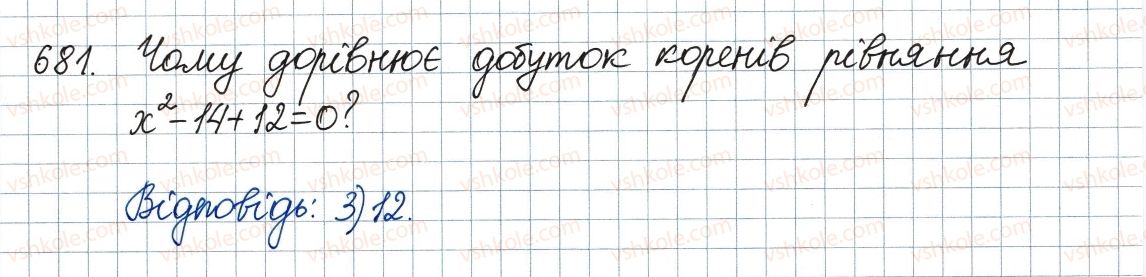 681. Чому дорівнює добуток коренів рівняння
x²-14+12=0?
Відповідь: 3) 12.